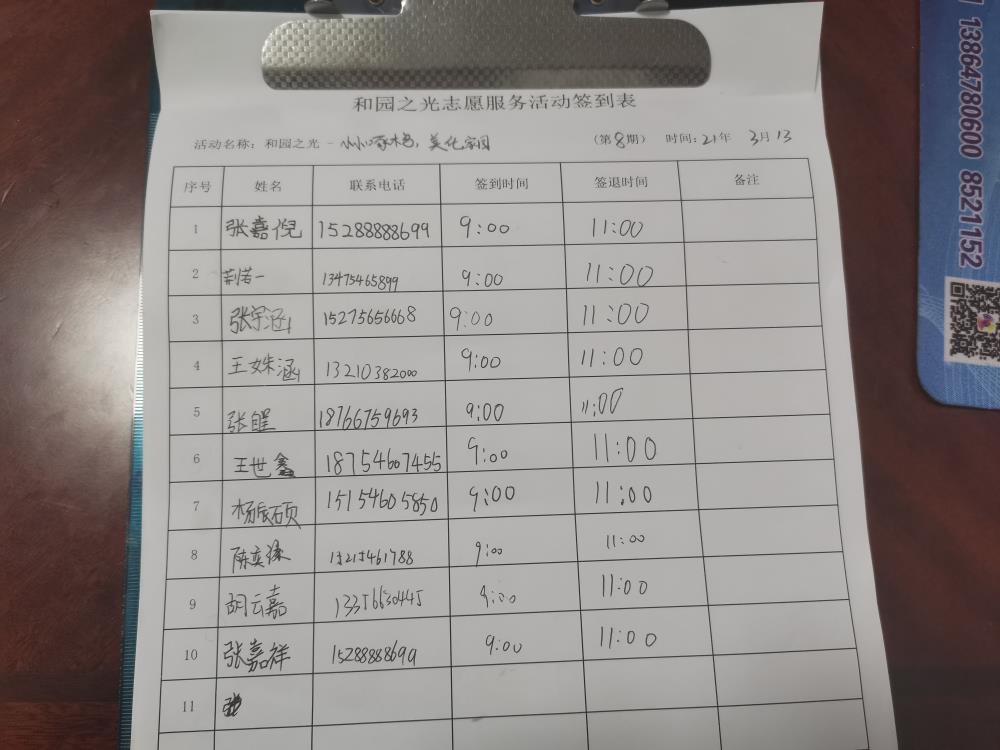 和园之光志愿服务活动签到表
活动名称：和园之光 - 小小啄木鸟，美化家园 （第8期） 时间：21年 3月13
序号 姓名 联系电话 签到时间 签退时间 备注
1 张嘉倪 15288888699 9:00 11:00
2 荆若一 13475465899 9:00 11:00
3 张宇涵 15275656668 9:00 11:00
4 王姝涵 13210382000 9:00 11:00
5 张 18766759693 9:00 11:00
6 王世鑫 18754607455 9:00 11:00
7 杨振硕 15154605850 9:00 11:00
8 陈奕 15215461788 9:00 11:00
9 胡云嘉 13356630445 9:00 11:00
10 张嘉祥 15288888699 9:00 11:00
11
13864780600 8521152